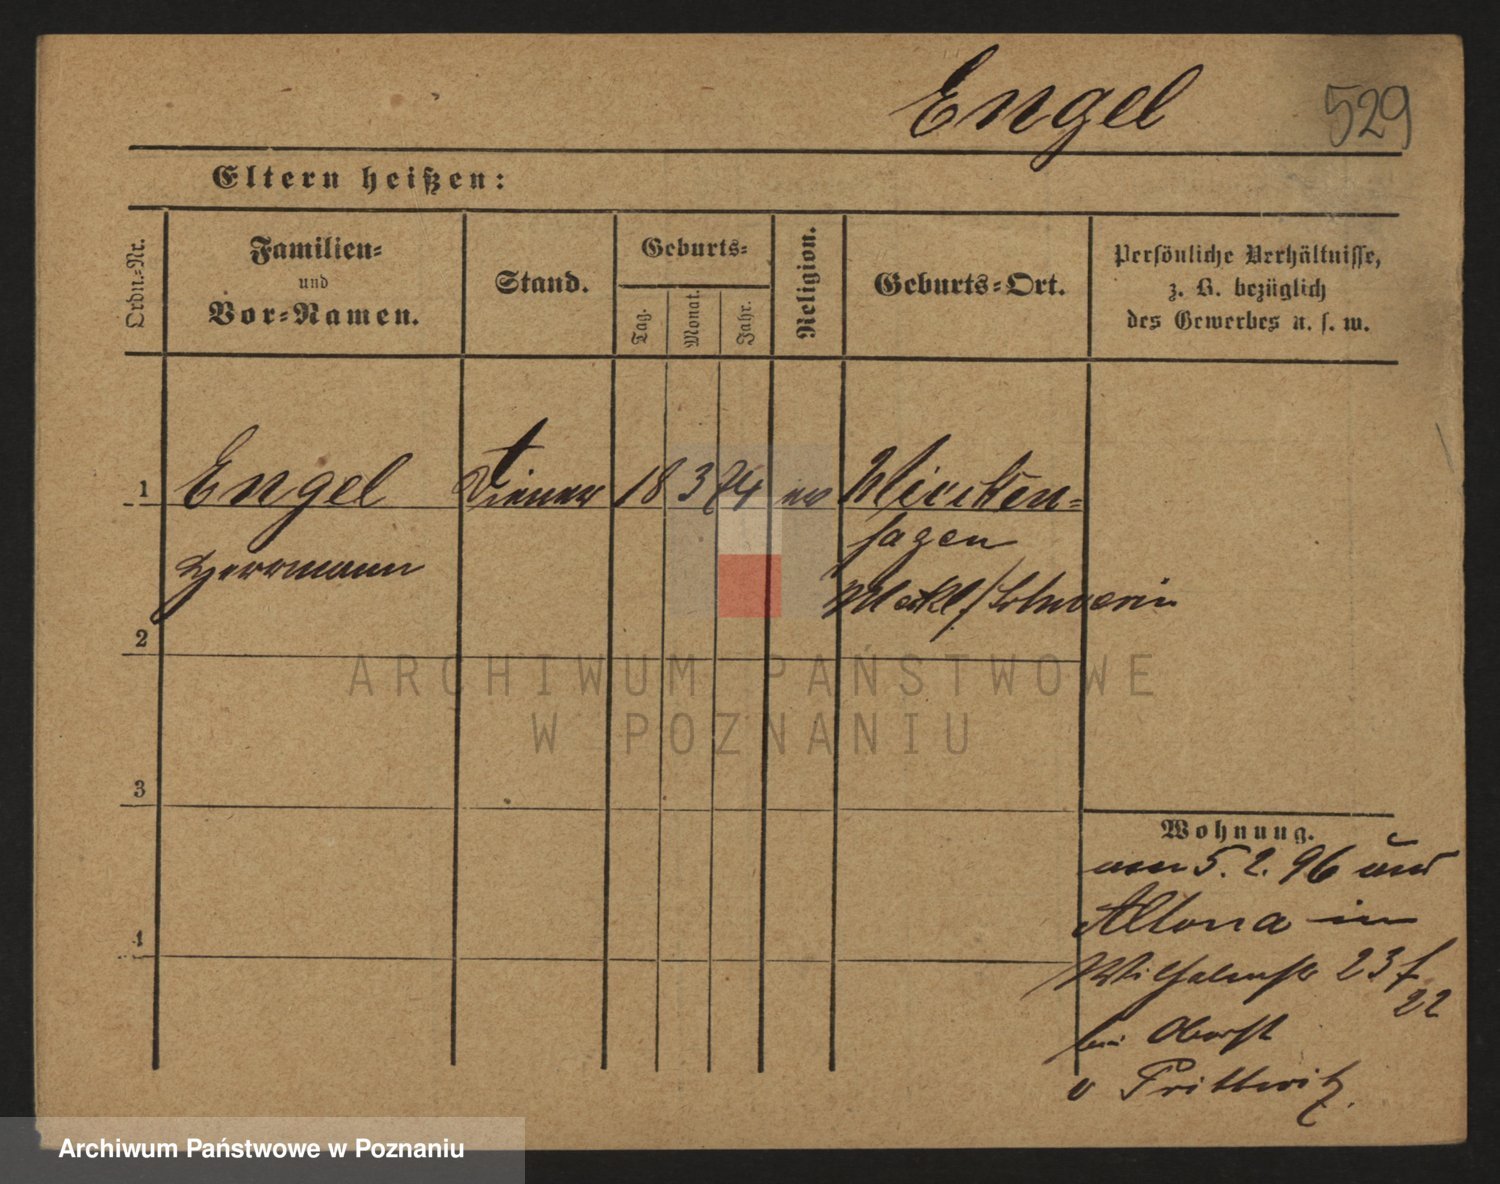 Engel
529
Eltern heißen:
Ordn.-Nr.
Familien-
und
Vor-Namen.
Stand.
Geburts-
Tag.
Monat.
Jahr.
Religion.
Geburts-Ort.
Persönliche Verhältnisse,
z. B. bezüglich
des Gewerbes u. s. w.
1 Engel Diener 18 3 74 ev
hagen
Herrmann
Meckl/Schwerin
2
ARCHIWUM PAŃSTWOWE
W POZNANIU
3
Wohnung.
5.2.96
Altona in
Wilhelmstr 23
22
bei Oberst
v Prittwitz.
4
Archiwum Państwowe w Poznaniu